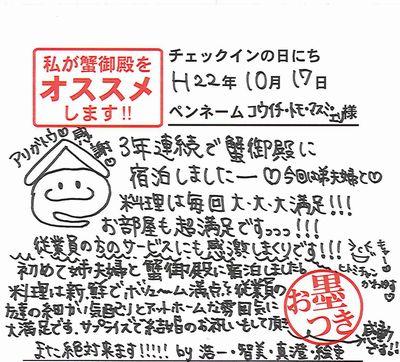 私が蟹御殿を
オススメ
します!!
チェックインの日にち
H22年10月17日
ペンネーム コウイチ・トモ・マスミ・エリ様
アリがトウ♡感謝♡
3年連続で蟹御殿に
宿泊しましたー♡今回は弟夫婦と♡
料理は毎回大・大・大満足!!!
お部屋も超満足ですっっっ!!!
従業員の方のサービスにも感激しまくりです!!!
初めて姉夫婦と蟹御殿に宿泊しました。
料理は新鮮でボリューム満点。従業員の
方達の細かい点配りとアットホームな雰囲気に
大満足です。サプライズで結婚のお祝いもして頂き
感動です!!
また絶対来ます!!!!! by 浩一・智美・真澄・絵里
お墨つき